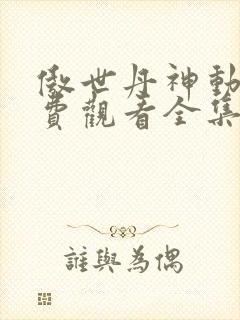 傲世丹神動
費觀看全集
誰與為偶